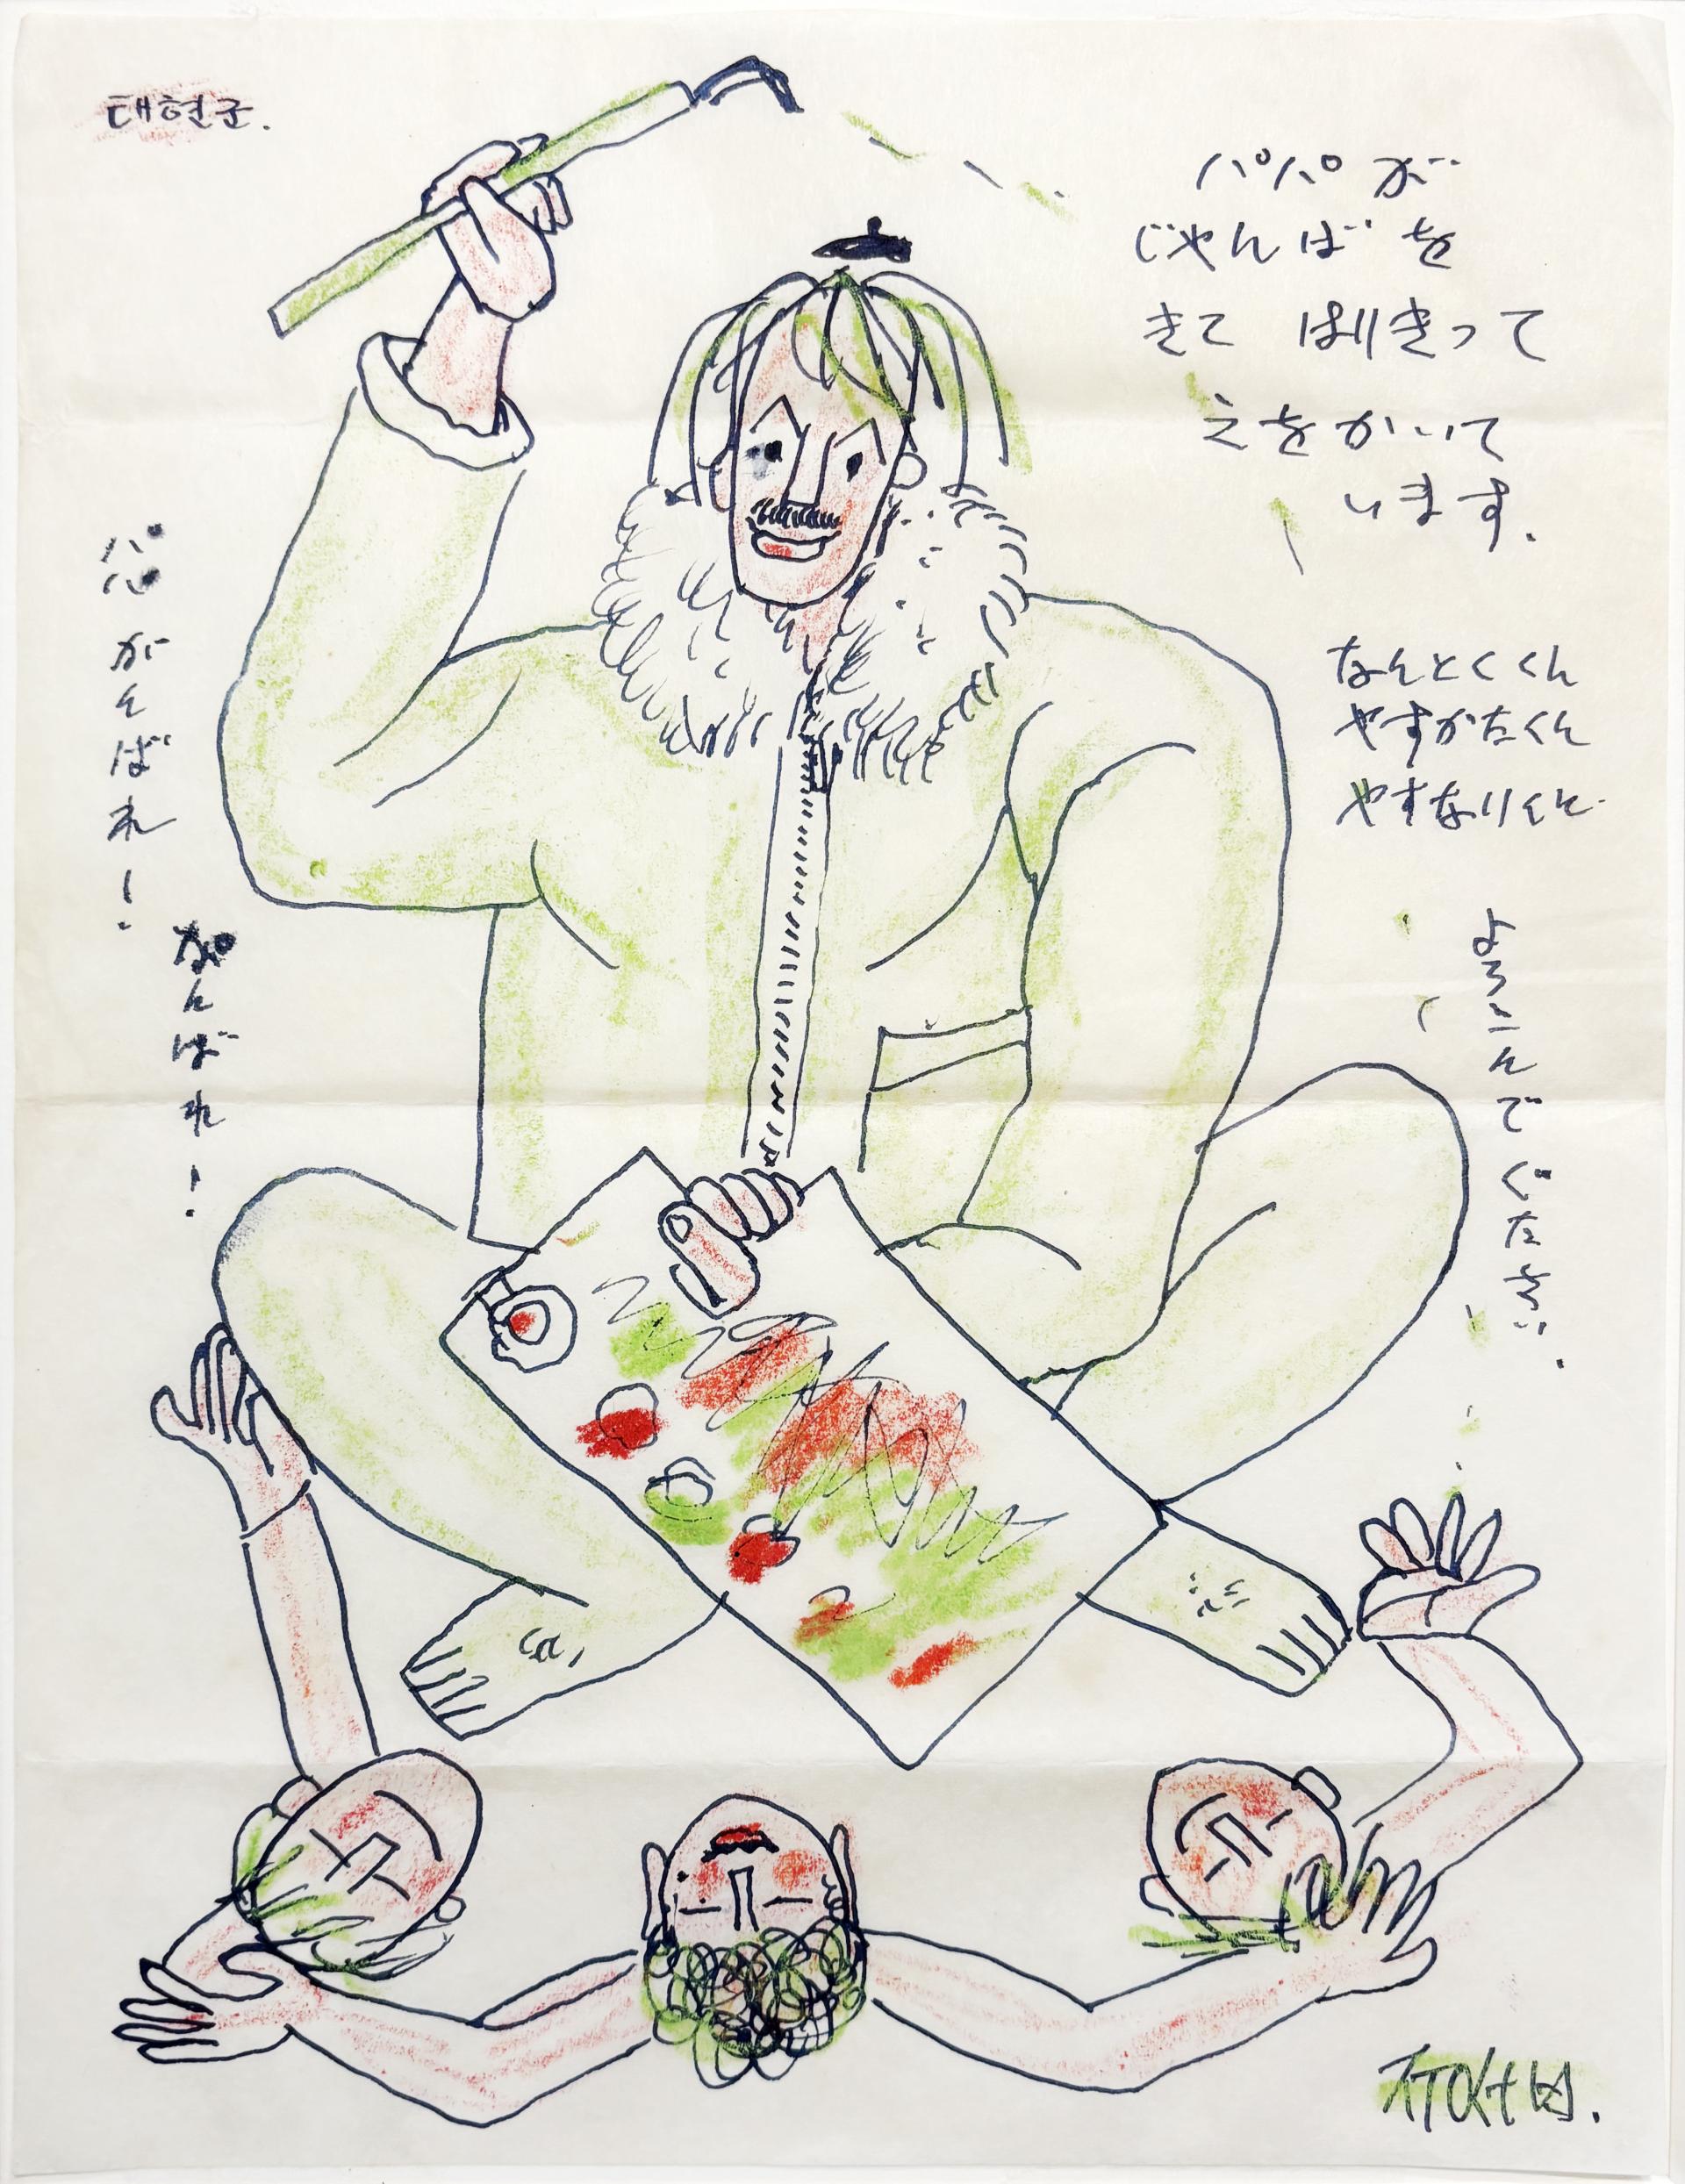 태현군.
パパが
じゃんばを
きて はりきって
えをかいて
います.
なんとくくん
やすかたくん
やすなりくん
よろこんでくたさい.
パパがんばれ!
がんばれ!